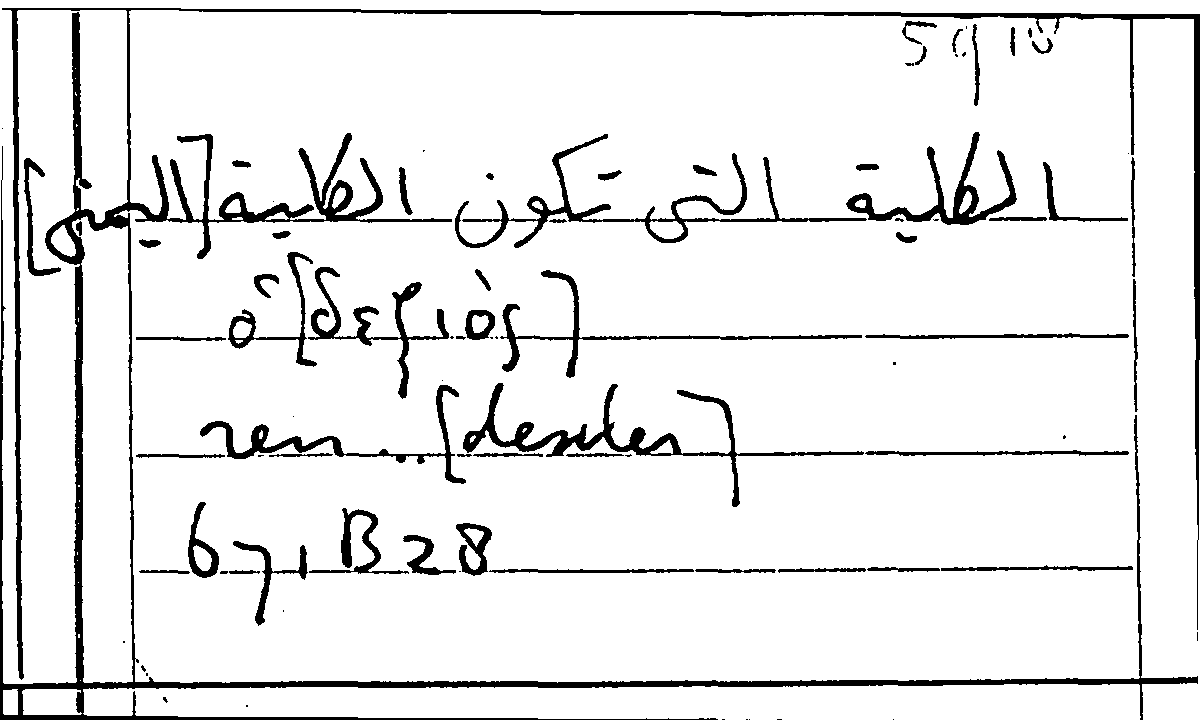 الكلية التي تكون الكلية [اليمنى]
ὁ [δεξιὸς]
ren ... [dexter]
671 B 28